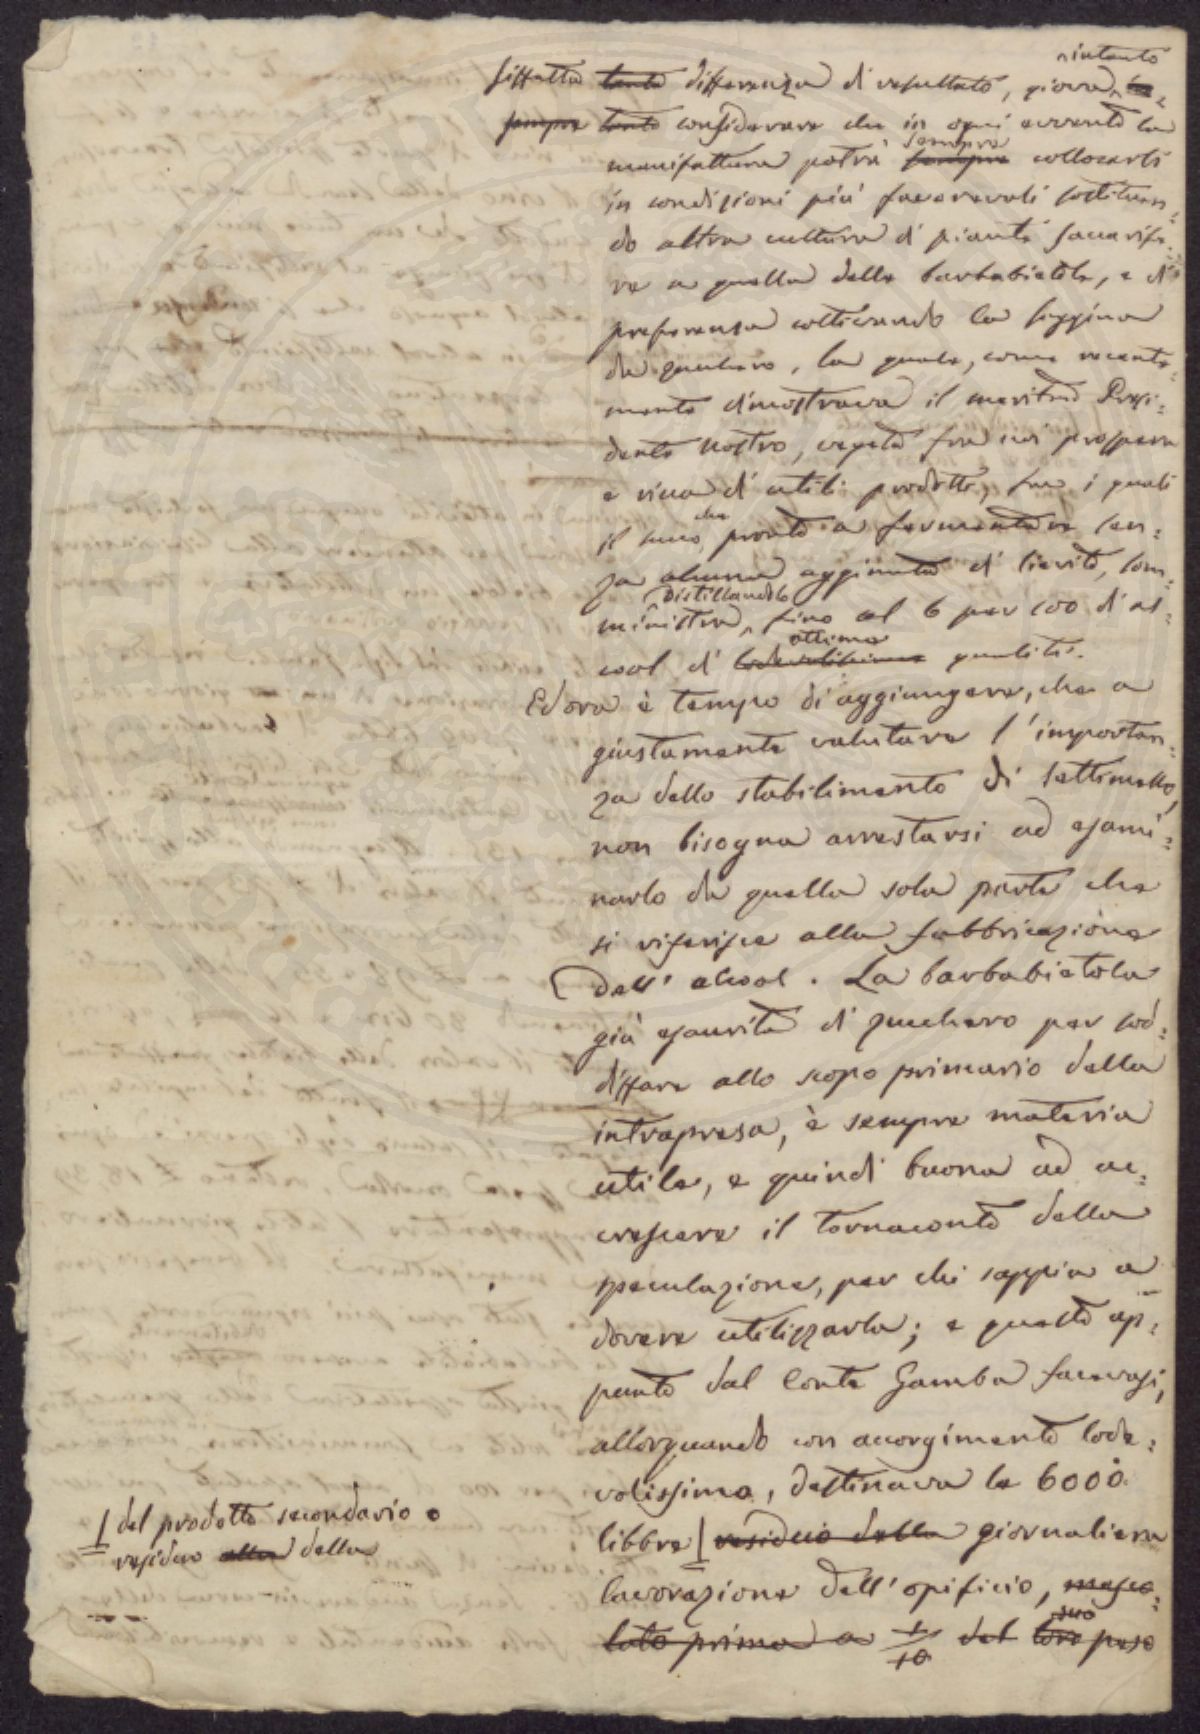 ^intanto
siffatta tanta differenza di resultato, giova
sempre tanto considerare che in ogni evvento la
sempre
manifattura potrà sempre collocarsi
in condizioni più favorevoli sostituen=
do altra cultura di piante saccarife=
re a quella delle barbabietole, e di
preferenza coltivando la saggina
da zucchero, la quale, come recente=
mente dimostrava il meritmo Presi=
dente nostro, vegeta fra noi prospera
e ricca di utili prodotti, fra i quali
che
il succo, pronto a fermentare sen=
za alcuna aggiunta di lievito, som=
distillandolo
ministra, fino al 6 per 100 di al=
ottima
cool di lodevolissima qualità.
Ed ora è tempo di aggiungere, che a
giustamente valutare l'importan=
za dello stabilimento di Settimello,
non bisogna arrestarsi ad esami=
narlo da quella sola parte che
si riferisce alla fabbricazione
dell'alcool. La barbabietola
già esaurita di zucchero per sod=
disfare allo scopo primario della
intrapresa, è sempre materia
utile, e quindi buona ad ac=
crescere il tornaconto della
speculazione, per chi sappia a
dovere utilizzarla; e questo ap=
punto dal Conte Gamba facevasi,
allorquando con accorgimento lode=
volissimo, destinava le 6000
libbre residuo della giornaliera
lavorazione dell'opificio, mesco=
suo
lato prima a 1/10 del loro peso
del prodotto secondario o
residuo alla della